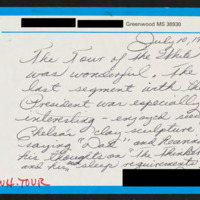 Greenwood MS 38930
July 10, 19
The Tour of the White
was wonderful. The
last segment with the
President was especially
interesting - enjoyed
Chelsea's clay sculpture
saying "Dad" and hearing
his thoughts on "The Thinker"
and his sleep requirements
W.H. TOUR